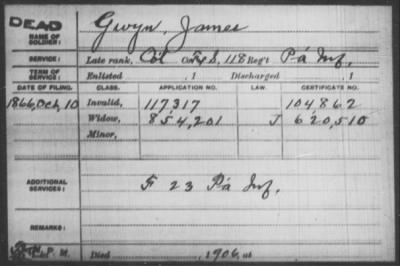 DEAD
NAME OF SOLDIER: Gwyn, James
SERVICE: Late rank, Col Co. F&S, 118 Reg't Pa Inf.
TERM OF SERVICE: Enlisted , 1 Discharged , 1
DATE OF FILING. CLASS. APPLICATION NO. LAW. CERTIFICATE NO.
1866, Oct, 10 Invalid, 117317 104862
Widow, 854,201 J 620,510
Minor,
ADDITIONAL SERVICES: F 23 Pa Inf.
REMARKS:
P. M. Died , 1906, at